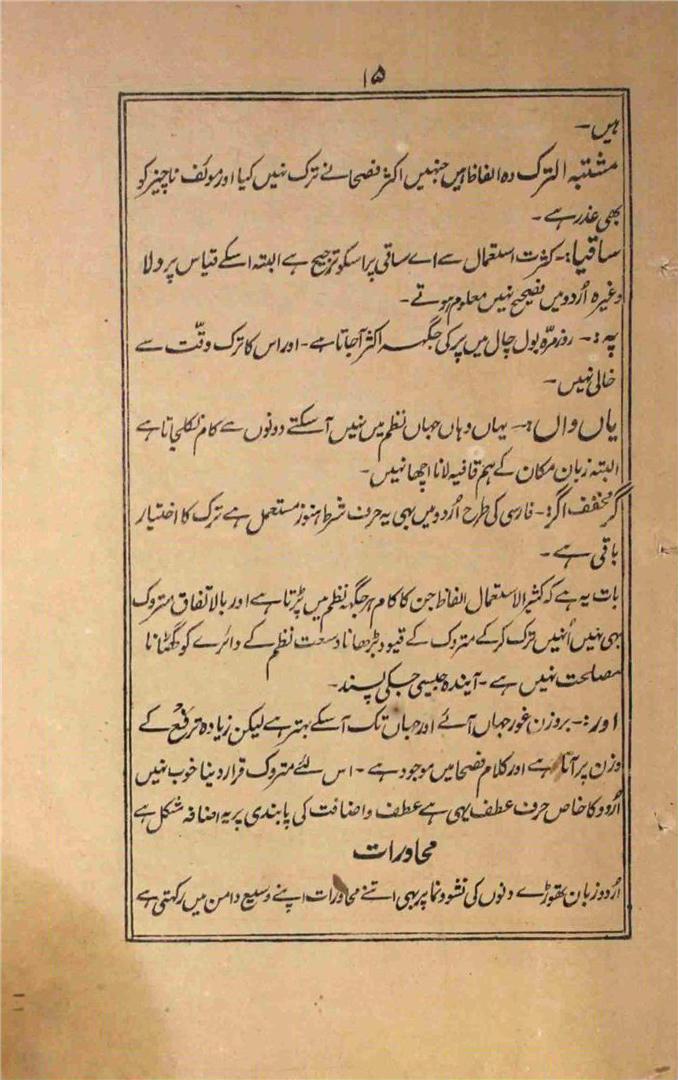 ۱۵
ہیں۔
مشتبہ الترک وہ الفاظ ہیں جنہیں اکثر فصحا نے ترک نہیں کیا اور مولف ناچیز کو
بھی عذر ہے۔
ساقیا:۔ کثرت استعمال سے اے ساقی پر اسکو ترجیح ہے البتہ اسکے قیاس پر دلا
وغیرہ اُردو میں فصیح نہیں معلوم ہوتے۔
پہ:۔ روزمرّہ بول چال میں پر کی جگہہ اکثر آجاتا ہے۔ اور اس کا ترک وقّت سے
خالی نہیں۔
یاں واں:۔ یہاں وہاں جہاں نظم میں نہیں آسکتے دونوں سے کام نکلجاتا ہے
البتہ زبان مکان کے ہم قافیہ لانا اچھا نہیں۔
گر مخفف اگر:۔ فارسی کی طرح اُردو میں بہی یہ حرف شرط ہنوز مستعمل ہے ترک کا اختیار
باقی ہے۔
بات یہ ہے کہ کثیر الاستعمال الفاظ جن کا کام ہر جگہہ نظم میں پڑتا ہے اور بالاتفاق متروک
بہی نہیں اُنہیں ترک کرکے متروک کے قیود بڑھانا وسعت نظم کے دائرے کو گھٹانا
مصلحت نہیں ہے۔ آیندہ جیسی جسکی پسند۔
اور:۔ بروزن غور جہاں آئے اور جہاں تک آسکے بہتر ہے لیکن زیادہ تر فع کے
وزن پر آتا ہے اور کلام فصحا میں موجود ہے۔ اس لئے متروک قرار دینا خوب نہیں
اُردو کا خاص حرف عطف یہی ہے عطف و اضافت کی پابندی پر یہ اضافہ مشکل ہے
محاورات
اُردو زبان تھوڑے دنوں کی نشوونما پر بہی اتنے محاورات اپنے وسیع دامن میں رکہتی ہے